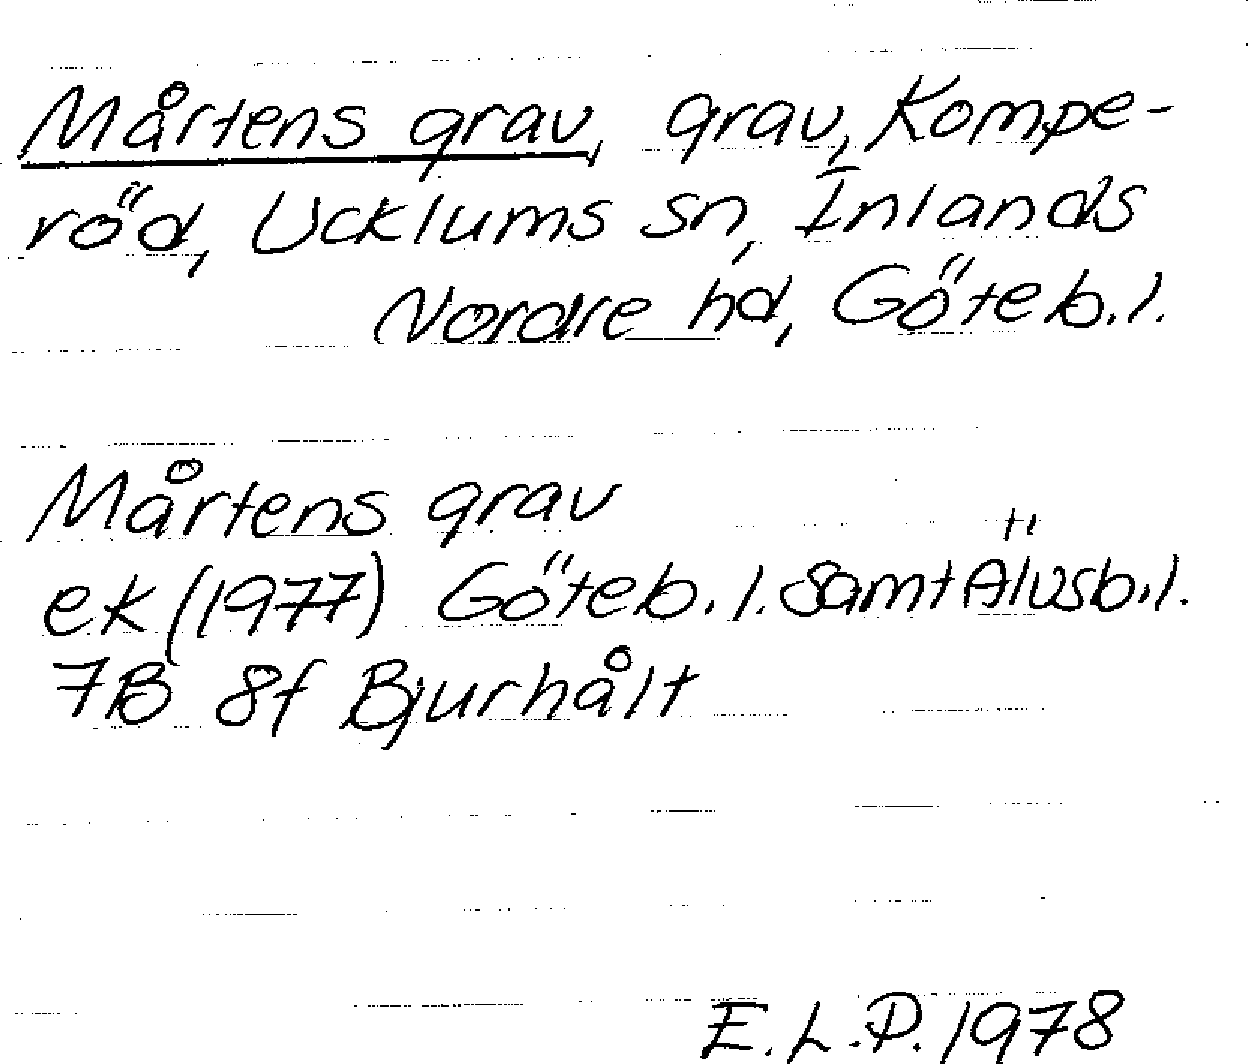 Mårtens grav, grav, Kompe-
röd, Ucklums sn, Inlands
Nordre hd, Göteb. l.
Mårtens grav
ek (1977) Göteb. l. samt Älvsb. l.
7B 8f Bjurhålt
E. L. P. 1978